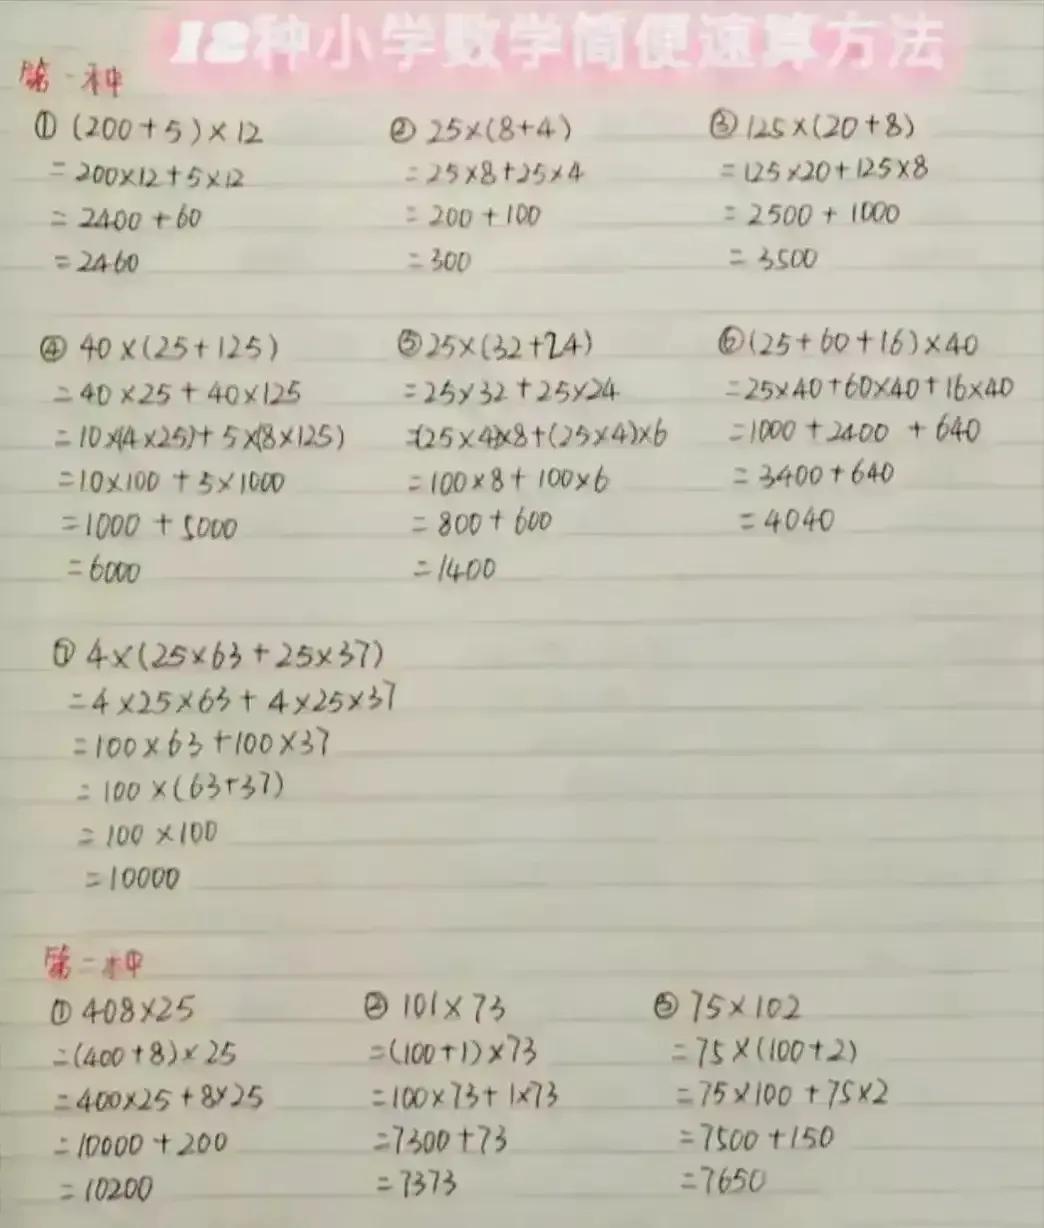 12种小学数学简便速算方法
第一种
① (200+5)×12
=200×12+5×12
=2400+60
=2460
② 25×(8+4)
=25×8+25×4
=200+100
=300
③ 125×(20+8)
=125×20+125×8
=2500+1000
=3500
④ 40×(25+125)
=40×25+40×125
=10×(4×25)+5×(8×125)
=10×100+5×1000
=1000+5000
=6000
⑤ 25×(32+24)
=25×32+25×24
=(25×4)×8+(25×4)×6
=100×8+100×6
=800+600
=1400
⑥ (25+60+16)×40
=25×40+60×40+16×40
=1000+2400+640
=3400+640
=4040
⑦ 4×(25×63+25×37)
=4×25×63+4×25×37
=100×63+100×37
=100×(63+37)
=100×100
=10000
第二种
① 408×25
=(400+8)×25
=400×25+8×25
=10000+200
=10200
② 101×73
=(100+1)×73
=100×73+1×73
=7300+73
=7373
③ 75×102
=75×(100+2)
=75×100+75×2
=7500+150
=7650